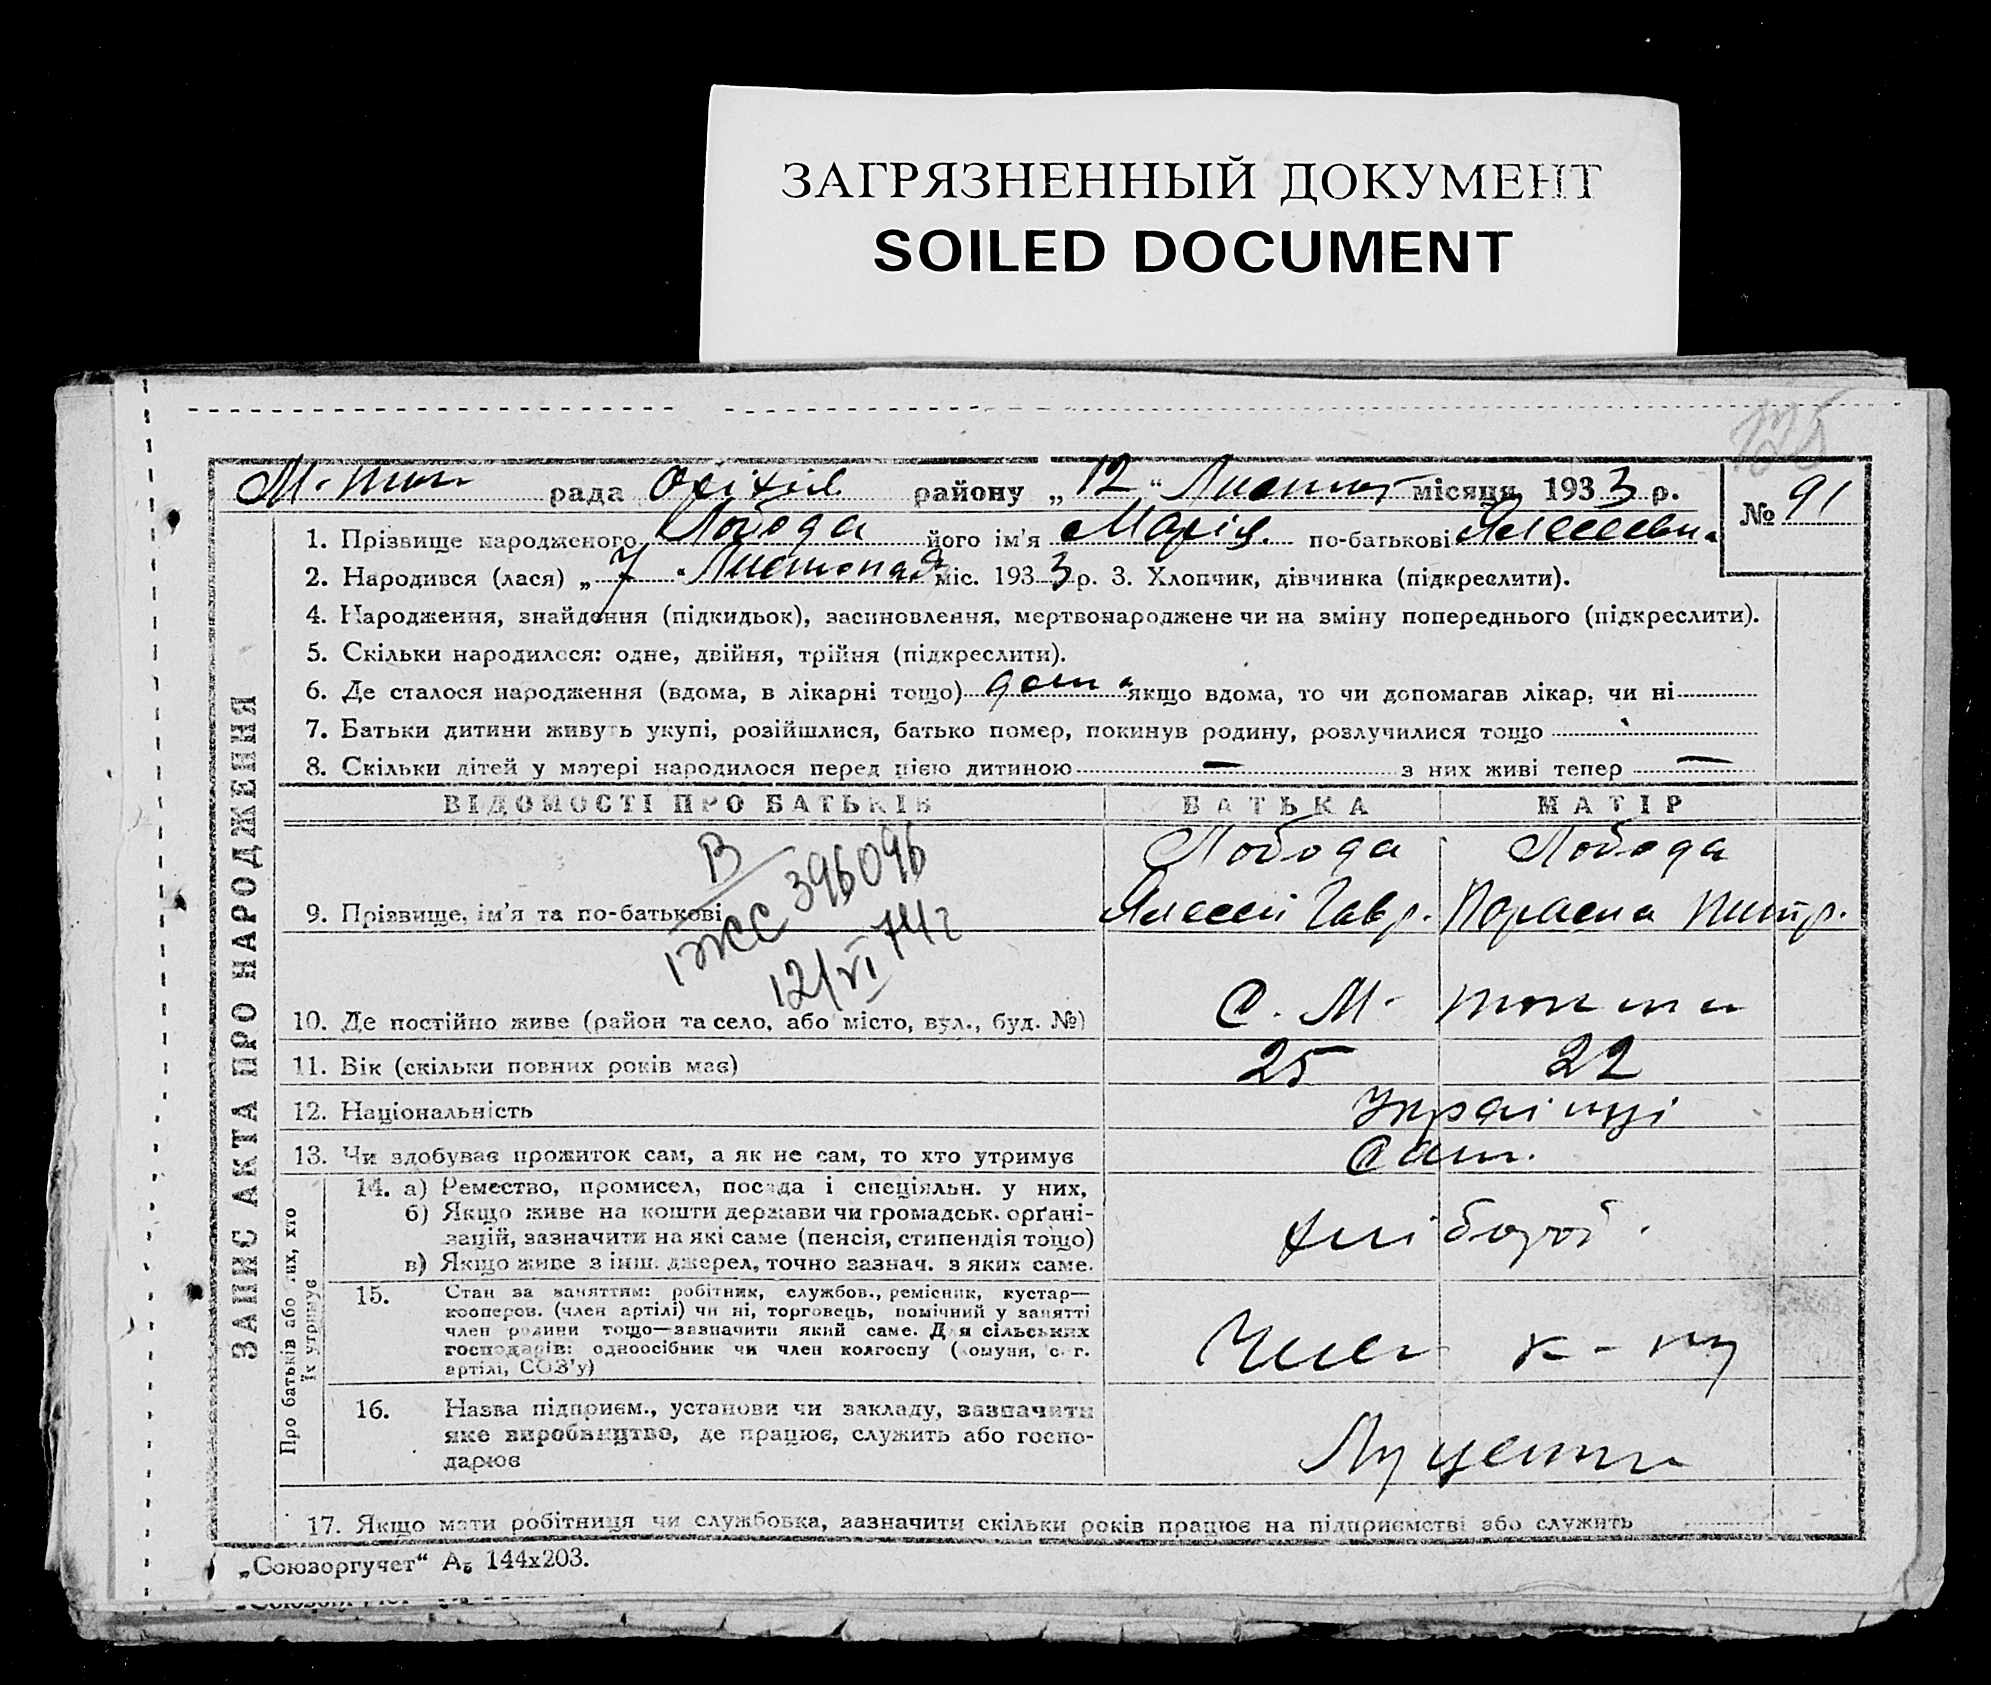 ЗАГРЯЗНЕННЫЙ ДОКУМЕНТ
SOILED DOCUMENT
М. Ток. рада Оріхів району „12“ Листоп. місяця 1933 р. № 91
1. Прізвище народженого Лобода його ім'я Марія по-батькові
2. Народився (лася) „7“ Листопад міс. 1933 р. 3. Хлопчик, дівчинка (підкреслити).
4. Народження, знайдення (підкидьок), засиновлення, мертвонароджене чи на зміну попереднього (підкреслити).
5. Скільки народилося: одне, двійня, трійня (підкреслити).
6. Де сталося народження (вдома, в лікарні тощо) дома якщо вдома, то чи допомагав лікар, чи ні
7. Батьки дитини живуть укупі, розійшлися, батько помер, покинув родину, розлучилися тощо
8. Скільки дітей у матері народилося перед цією дитиною — з них живі тепер —
ЗАПИС АКТА ПРО НАРОДЖЕННЯ
ВІДОМОСТІ ПРО БАТЬКІВ БАТЬКА МАТІР
Лобода Лобода
9. Прізвище, ім'я та по-батькові Алексій Гавр. Параска
В
ІЖС 396096
12/VI 74г
10. Де постійно живе (район та село, або місто, вул., буд. №) С. М-Токмач
11. Вік (скільки повних років має) 25 22
12. Національність Українці
13. Чи здобуває прожиток сам, а як не сам, то хто утримує Сам.
Про батьків або тих, хто їх утримує
14. а) Ремество, промисел, посада і спеціяльн. у них,
б) Якщо живе на кошти держави чи громадськ. орґані-
зацій, зазначити на які саме (пенсія, стипендія тощо)
в) Якщо живе з інш. джерел, точно зазнач. з яких саме.
хлібороб.
15. Стан за заняттям: робітник, службов., ремісник, кустар—
кооперов. (член артілі) чи ні, торговець, помічний у занятті
член родини тощо—зазначити який саме. Для сільських
господарів: одноосібник чи член колгоспу (комуни, с.-г.
артілі, СОЗ'у)
Член к-пу
16. Назва підприєм., установи чи закладу, зазначити
яке виробництво, де працює, служить або госпо-
дарює
17. Якщо мати робітниця чи службовка, зазначити скільки років працює на підприємстві або служить
„Союзоргучет“ А5 144х203.